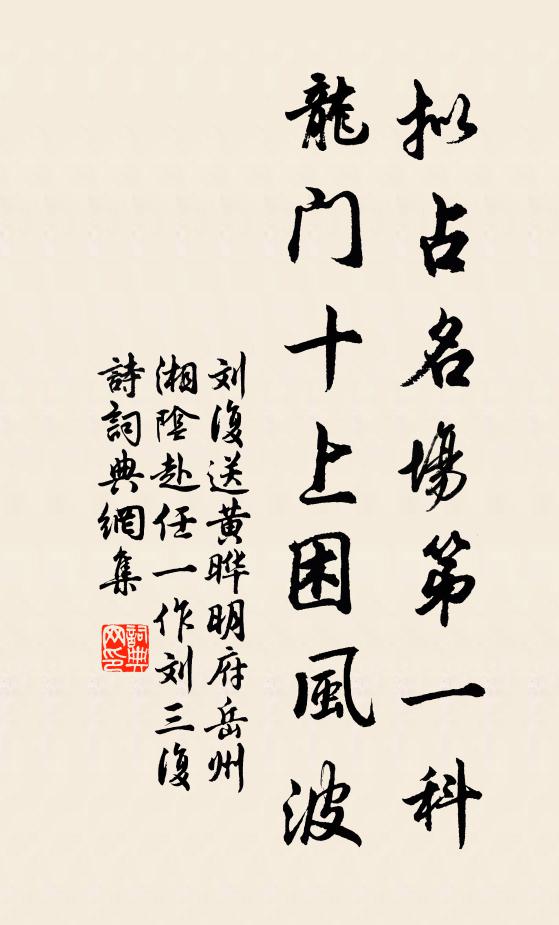 拟占名場第一科
龍门十上困風波
刘復送黄晔明府岳州
湘陰赴任一作刘三復
詩詞典網集
詞典
网印